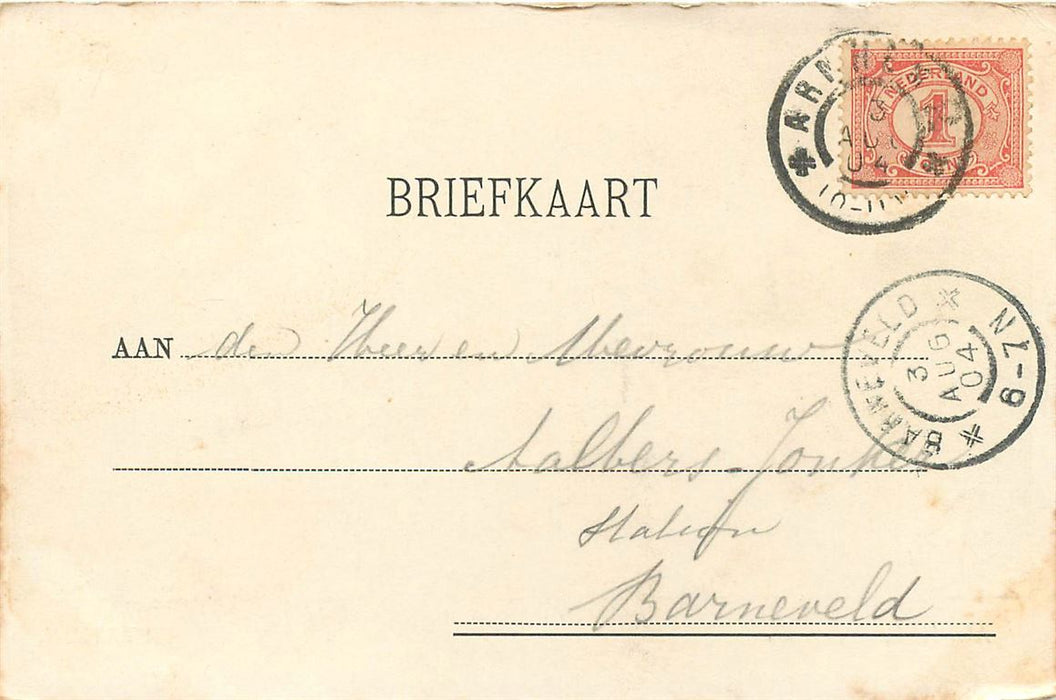 ARNHEM
AUG
04
10-11V
NEDERLAND
1
BRIEFKAART
BARNEVELD
3
AUG
04
6-7N
AAN den Heer en Mevrouw
Aalbers-Jonker
Station
Barneveld